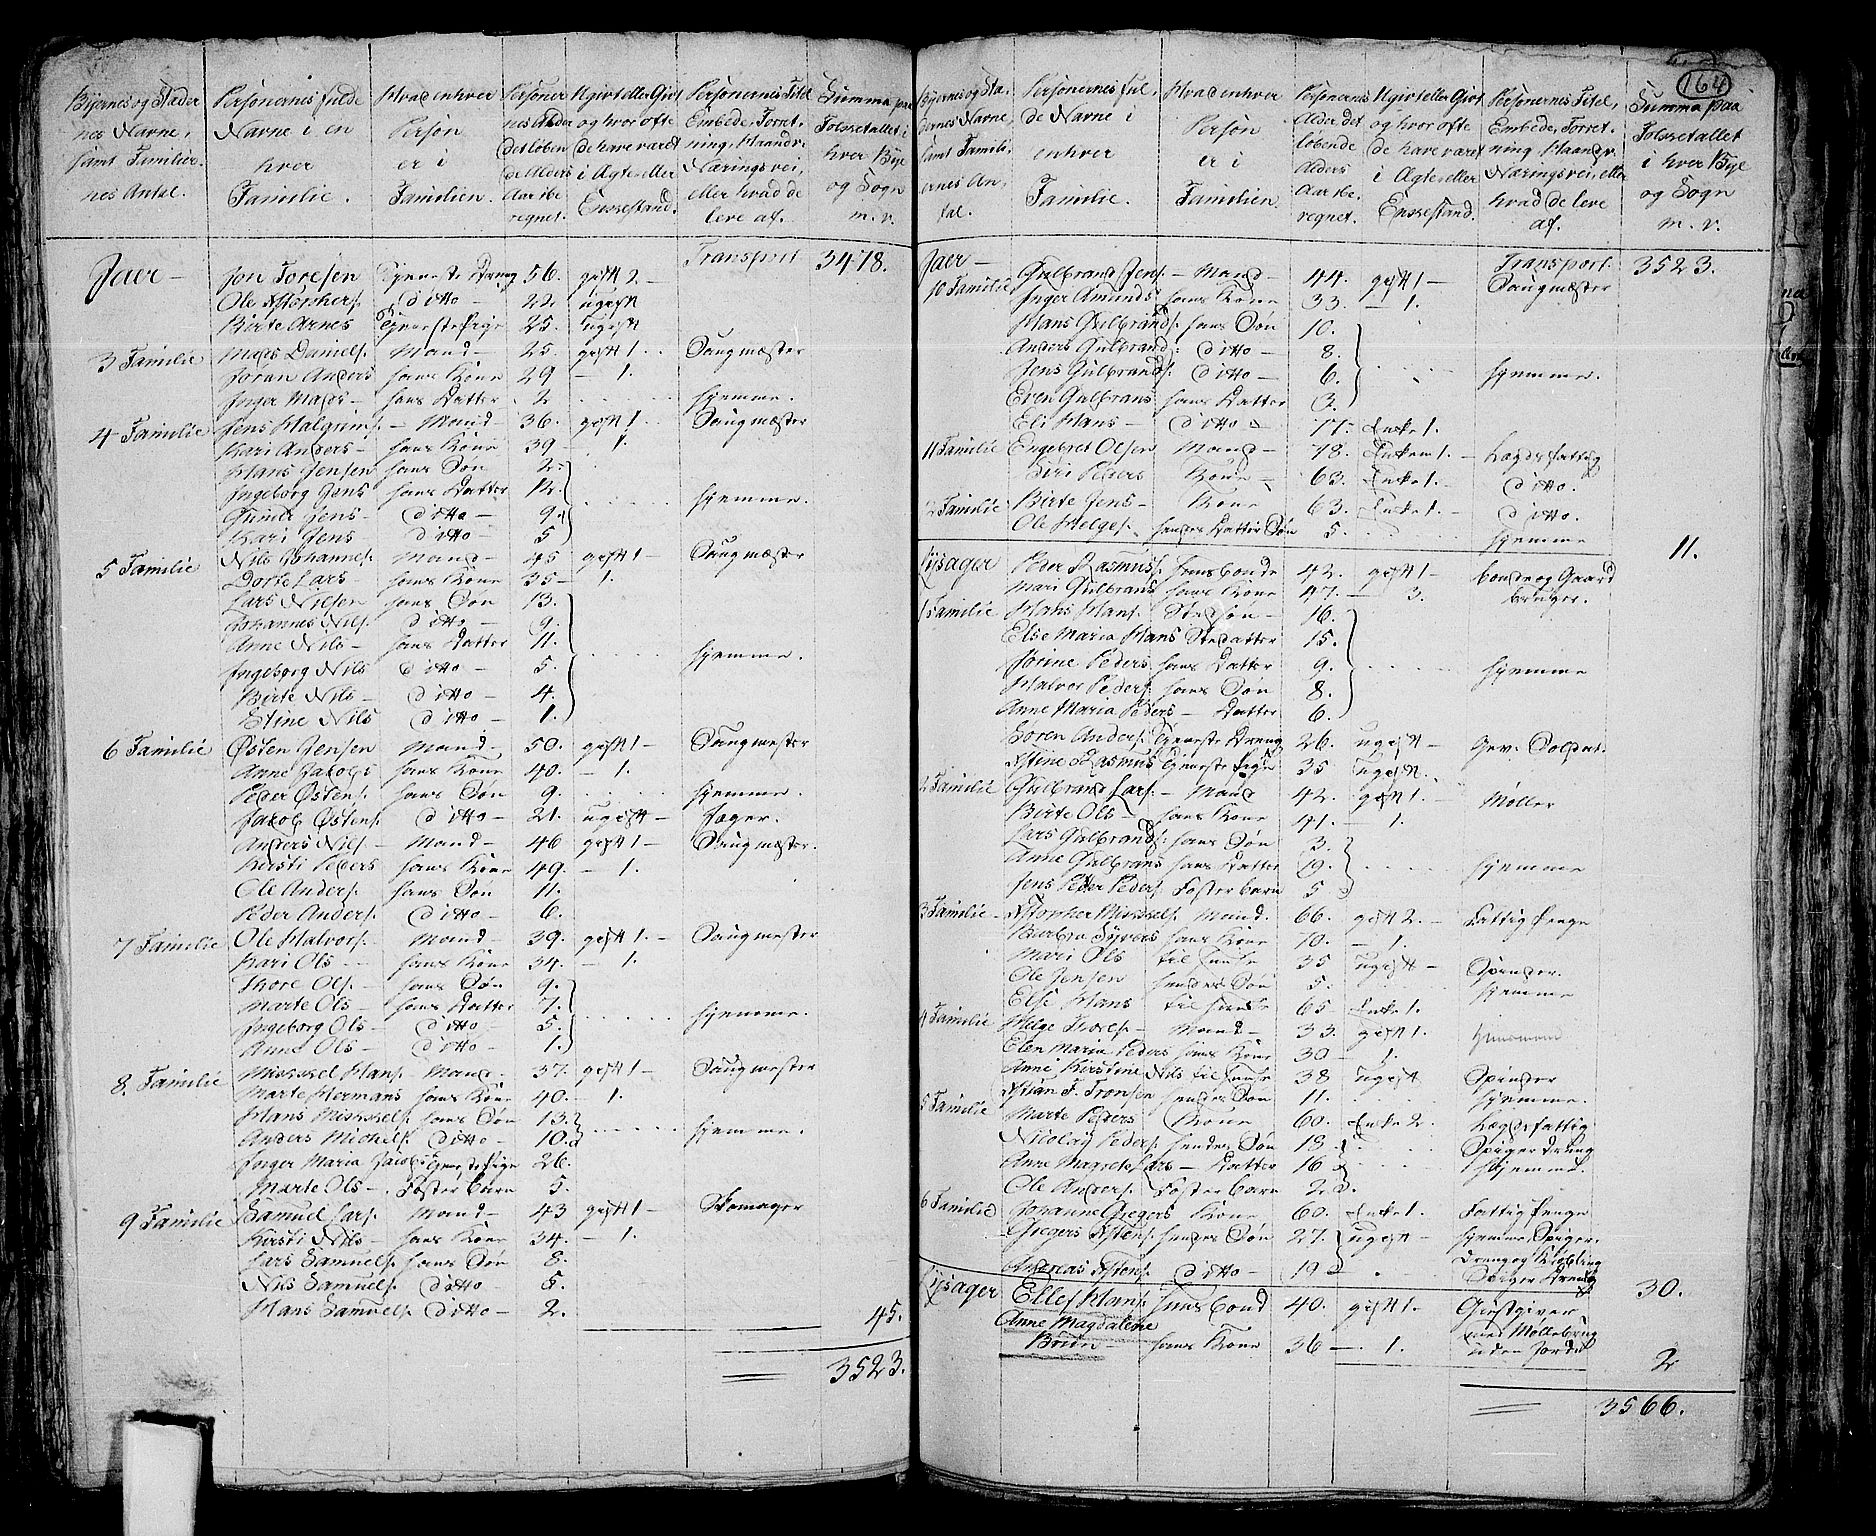 164
Byernes og Stæder Personernes fulde Hvad enhver Personer Ugivt eller Givt Personernes Titel Summa paa
nes Navne, Navne i en Person nes Alder og hvor ofte Embede, Forret Folketallet i
samt Familier hver er i det løben de have været ning, Haandv. hver Bye
nes Antal. Familie. Familien. de Alders i Ægte eller Næringsvei, og Sogn
Aar be Enkestand. eller hvad de m. v.
regnet. leve af.
Jaer — Transport 3478.
Jon Toresen Tjeneste Dreng 56. gift 2 —
Ole Kstophers. ditto — 22 ugift
Birte Arnes Tjenestepige 25. ugift
3 Familie Mads Daniels. Mand — 25. gift 1. Saugmæster
Joran Anders hans Kone 29 — 1.
Inger Mads — hans Datter 2 hjemme.
4 Familie Jens Halgrims. — Mand — 36. gift 1 Saugmæster
Kari Anders — hans Kone 39 — 1.
Hans Jensen hans Søn 2
Ingeborg Jens hans Datter 12. hjemme.
Gunil Jens — ditto — 9.
Kari Jens ditto — 5
5 Familie Nils Johannes. Mand — 45 gift 1 — Saugmæster
Dorte Lars — hans Kone 35 — 1.
Lars Nilsen hans Søn 13.
Johannes Nils. ditto — 9.
Anne Nils — hans Datter 11.
Ingeborg Nils ditto — 5. hjemme.
Birte Nils — ditto — 4.
Stine Nils ditto — 1.
6 Familie Østen Jensen Mand — 50. gift 1 — Saugmester
Anne Jacobs hans Kone 40. — 1.
Peder Østens. hans Søn 9. hjemme.
Jacob Østens. ditto — 21. ugift — Jæger.
Anders Nils. — Mand — 46 gift 1 — Saugmæster.
Kirsti Peders hans Kone 49. — 1.
Ole Anders. hans Søn 11.
Peder Anders. ditto — 6.
7 Familie Ole Halvors. Mand — 39. gift 1. — Saugmester
Kari Ols — hans Kone 34. — 1.
Thore Ols. — hans Søn 9.
Marte Ols hans Datter 7.
Ingeborg Ols — ditto — 5. hjemme.
Anne Ols — ditto — 1.
8. Familie Mikkel Hans. — Mand — 37. gift 1 — Saugmester
Marte Hermans hans Kone 40. — 1.
Hans Mikkels. hans Søn 13.
Anders Michels. ditto — 10. hjemme.
Inger Maria Jacobs Tjenestepige 26.
Marte Ols — Foster barn 5.
9 Familie Samuel Lars. Mand — 43 gift 1 — Skomager
Kirsti Nils — hans Kone 34. — 1.
Lars Samuels. hans Søn 8.
Nils Samuels. ditto — 5.
Hans Samuels. ditto — 2.
45.
3523.
Byernes og Stæ, Personernes ful, Hvad enhver Personernes Ugivt eller Givt Personernes Titel, Summa paa
dernes Navne, de Navne i Person Alder det og hvor ofte Embede, Forret Folketallet
samt Famili enhver er i løbende de have været ning Haandv. i hver Bye
ernes An, Familie. Familien. Alders i Ægte eller Næringsvei, eller og Sogn
tal. Aar be Enkestand. hvad de leve m. v.
regnet. af.
Jaer — Transport. 3523.
10 Familie Gulbrand Jens. — Mand — 44. gift 1 — Saugmæster
Inger Amunds hans Kone 33. — 1.
Hans Gulbrands. hans Søn 10.
Anders Gulbrands. ditto — 8.
Jens Gulbrands. ditto — 6. hjemme.
Even Gulbrans hans Datter 3.
Eli Hans — ditto — 77. Enke 1.
11 Familie Engebret Olsen Mand — 78. Enkem 1. — Lægdsfattig
Siri Peders Kone — 63. Enke 1. ditto.
Familie Birte Jens — Kone 63. Enke 1. — ditto.
Ole Helges. hendes Datter Søn 5. hjemme
11.
Lysager Peder Rasmus. Husbonde 42. gift 1 — bonde og Gaard
Mari Gulbrands hans Kone 47. — 3. bruger.
1 Familie Hans Hans. Stedsøn — 16.
Else Maria Hans Stedatter 15.
Jørine Peders hans Datter 9. hjemme
Halvor Peders. hans Søn 8.
Anne Maria Peders — Datter 6.
Soren Anders. Tjeneste Dreng 26. ugift — Gev. Soldat.
Kstine Rasmus Tjeneste Pige 35 ugift.
2 Familie Gulbrand Lars. — Mand 42. gift 1. — Møller
Birte Ols — hans Kone 41. — 1.
Lars Gulbrands. hans Søn 3.
Anne Gulbrans hans Datter 19. hjemme
Jens Peder Peders. Foster barn 5
3 Familie — Kstopher Mikkels. Mand. 66. gift 2. — Fattig Penge
Barbra Syvers hans Kone 70. — 1.
Mari Ols til huuse 35 ugift — Spinder.
Ole Jensen hendes Søn 5. hjemme
Else Hans til huuse 65 Enke 1.
4 Familie Helge Trols. — Mand — 33. gift 1.
Elen Maria Peders hans Kone 30 — 1.
Anne Kirstine Nils til huuse 38 ugift Spinder
Kstian F. Tronsen hendes Søn 11. hjemme.
5 Familie Marte Peders Kone 60. Enke 2. Lægdsfattig
Nicolay Peders. hendes Søn 18 Spigerdreng
Anne Magrete Lars — Datter 16 hjemme.
Ole Anders. Foster barn 2
6 Familie Johanne Gregers Kone 60. Enke 1. Fattig Penge
Gregers Kstens. hendes Søn 27. ugift — hjemme, Spiger
Andreas Kstens. ditto — 19 Spiger Dreng
30.
Lysager Ellef Hans. Huusbond 40. gift 1. Giestgiver
Anne Magdalene med Møllebrug
Bruun — hans Kone 36 — 1. uden Jord
2
3566.